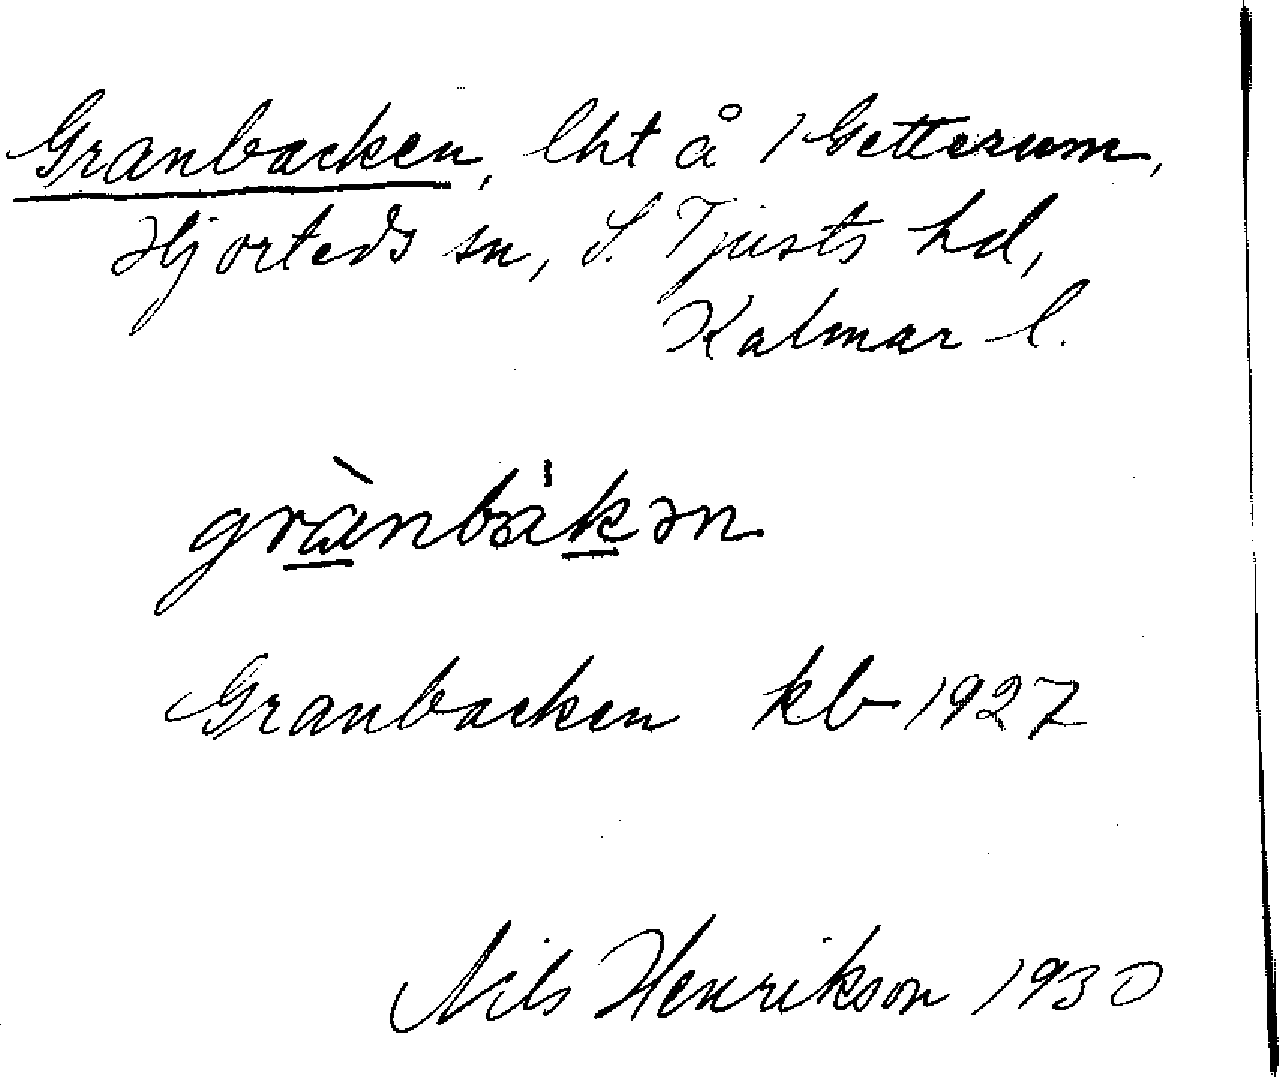 Granbacken, lht å 1 Getterum,
Hjorteds sn, S. Tjusts hd,
Kalmar l.
grànbàkən
Granbacken kb 1927
Nils Henrikson 1930